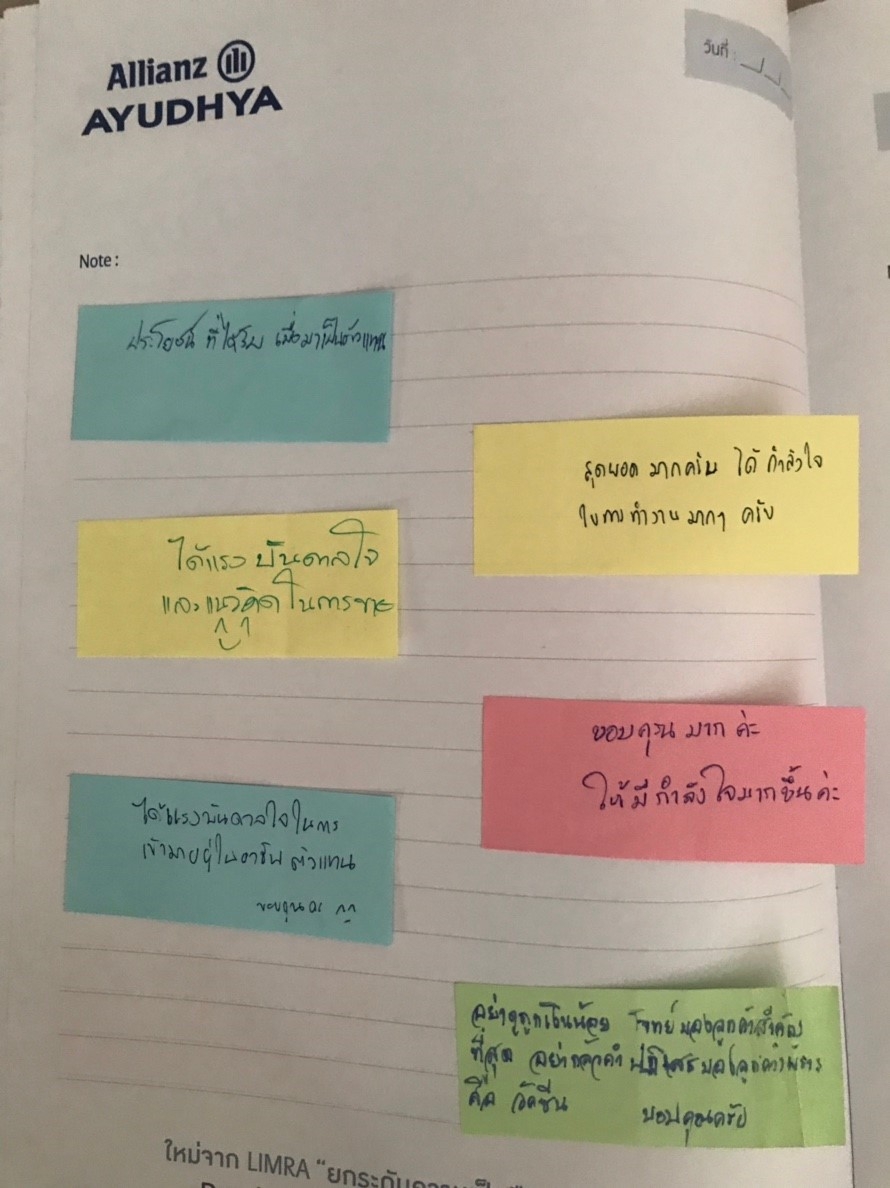 Allianz
AYUDHYA
วันที่ :
Note :
ประโยชน์ ที่ได้รับ เมื่อมาเป็นตัวแทน
สุดยอด มากครับ ได้ กำลังใจ
ในการทำงาน มากๆ ครับ
ได้แรง บันดาลใจ
และแนวคิด ในการขาย
ขอบคุณ มาก ค่ะ
ให้ มี กำลัง ใจมากขึ้นค่ะ
ได้แรงบันดาลใจในการ
เข้ามาอยู่ในอาชีพ ตัวแทน
ขอบคุณค่ะ ^^
อย่าดูถูกเงินน้อย โจทย์ของลูกค้าสำคัญ
ที่สุด อย่ากลัวคำ ปฏิเสธของลูกค้า
คือ วัคซีน
ขอบคุณครับ
ใหม่จาก LIMRA "ยกระดับความเป็น